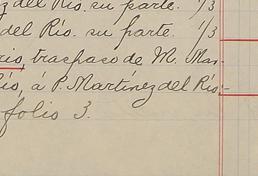 z del Río. su parte. 1/3
del Río. su parte. 1/3
rio, traspaso de M. Mar-
lío, á P. Martínez del Río.-
folio 3.